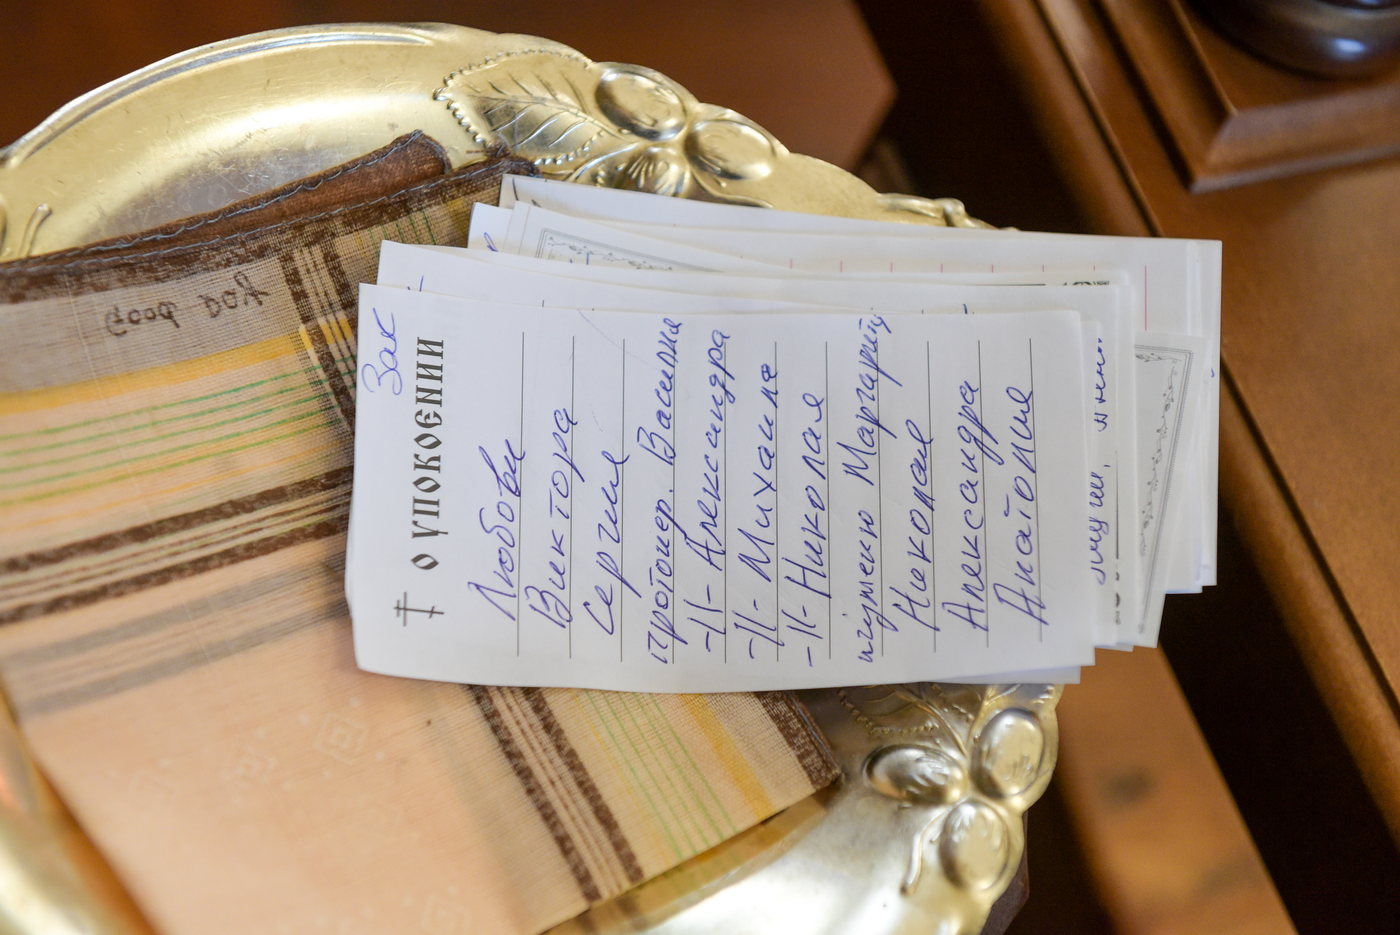 Зак
О УПОКОЕНИИ
Любови
Виктора
Сергия
протоиер. Василия
-||- Александра
-||- Михаила
-||- Николая
игуменю Маргариту
Николая
Александра
Анатолия